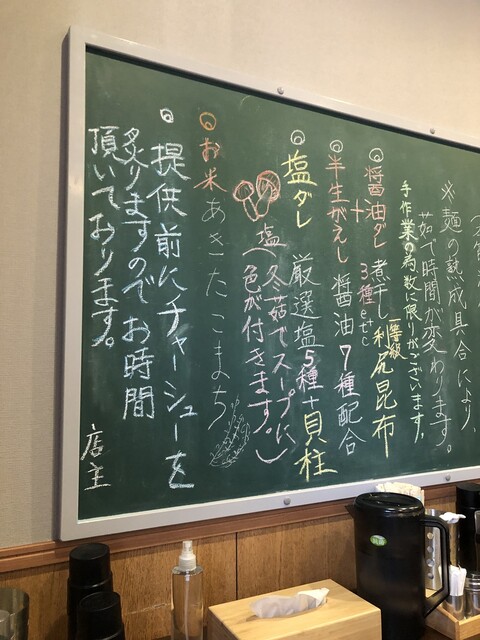 ※麺の熟成具合により、
茹で時間が変わります。
手作業の為数に限りがございます。
◎醤油ダレ 煮干し3種etc
+
一等級
利尻昆布
◎半生がえし 醤油7種配合
◎塩ダレ 厳選塩5種+貝柱
塩(冬茹でスープに
色が付きます。)
◎お米 あきたこまち
◎提供前にチャーシューを
炙りますのでお時間
頂いております。
店主